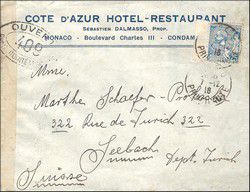 COTE D'AZUR HOTEL-RESTAURANT
SÉBASTIEN DALMASSO, PROP.
MONACO - Boulevard Charles III - CONDAM
OUVERT
409
Mme.
Marthe Schaefer
322 Rue de Zurich 322
Seebach
Suisse
Dept. Zurich